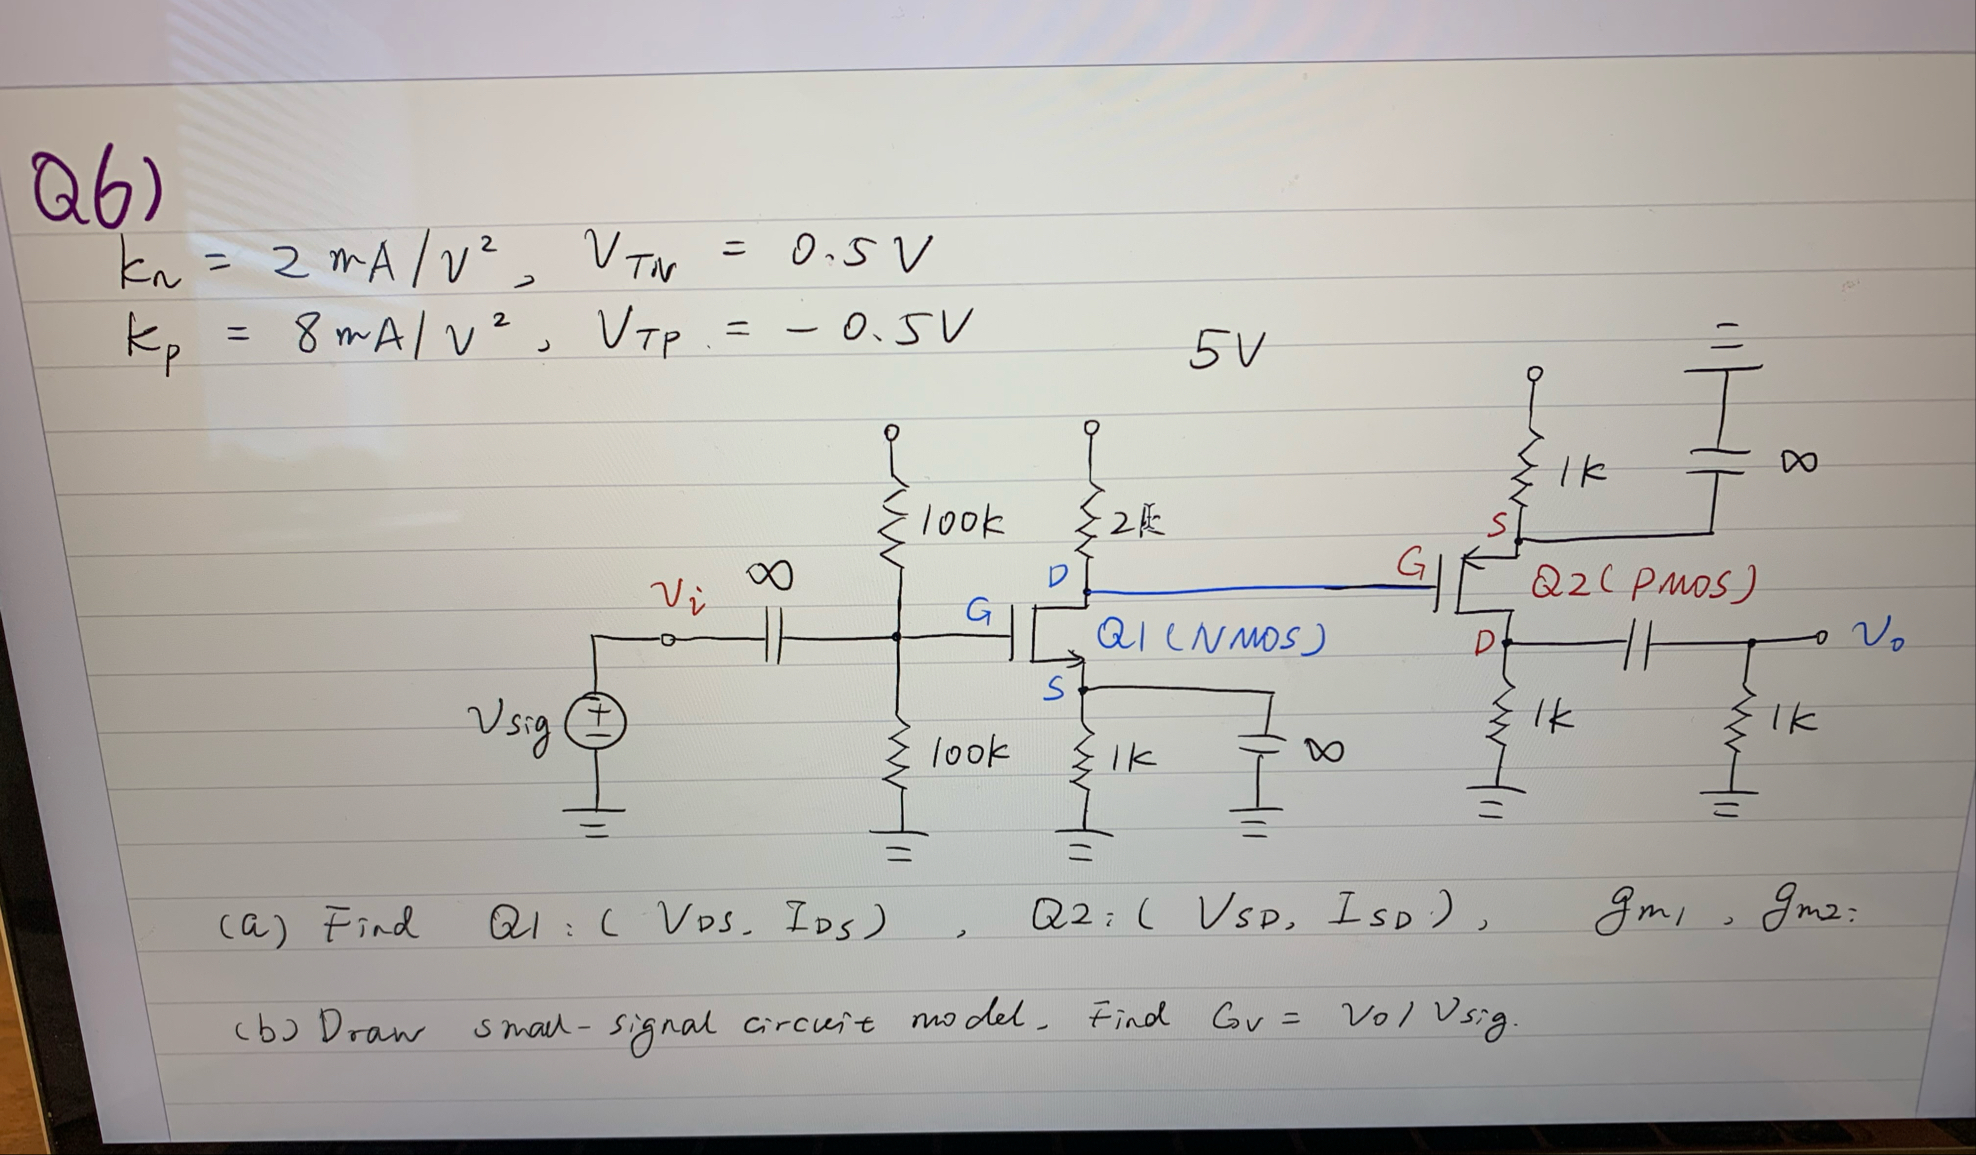 Q6)
kn = 2 mA/V², VTN = 0.5V
kp = 8mA/V², VTP = -0.5V
5V
1k
∞
100k
2k
S
G
Q2(PMOS)
∞
Vi
D
G
Q1(NMOS)
D
Vo
S
Vsig
+
-
100k
1k
∞
1k
1k
(a) Find Q1: (VDS, IDS), Q2: (VSD, ISD), gm1, gm2:
(b) Draw small-signal circuit model. Find Gv = Vo/Vsig.